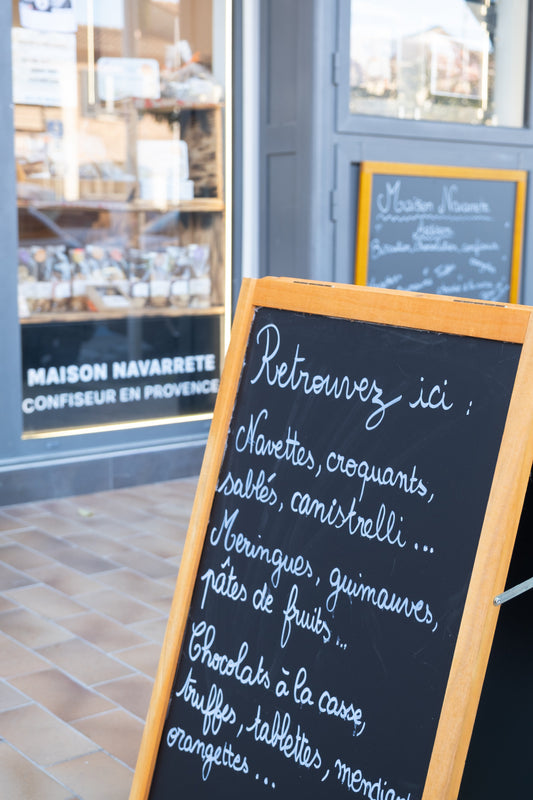 MAISON NAVARRETE
CONFISEUR EN PROVENCE
Maison Navarrete
Retrouvez ici :
Navettes, croquants,
sablés, canistrelli...
Meringues, guimauves,
pâtes de fruits...
Chocolats à la casse,
truffes, tablettes, mendian
orangettes ...